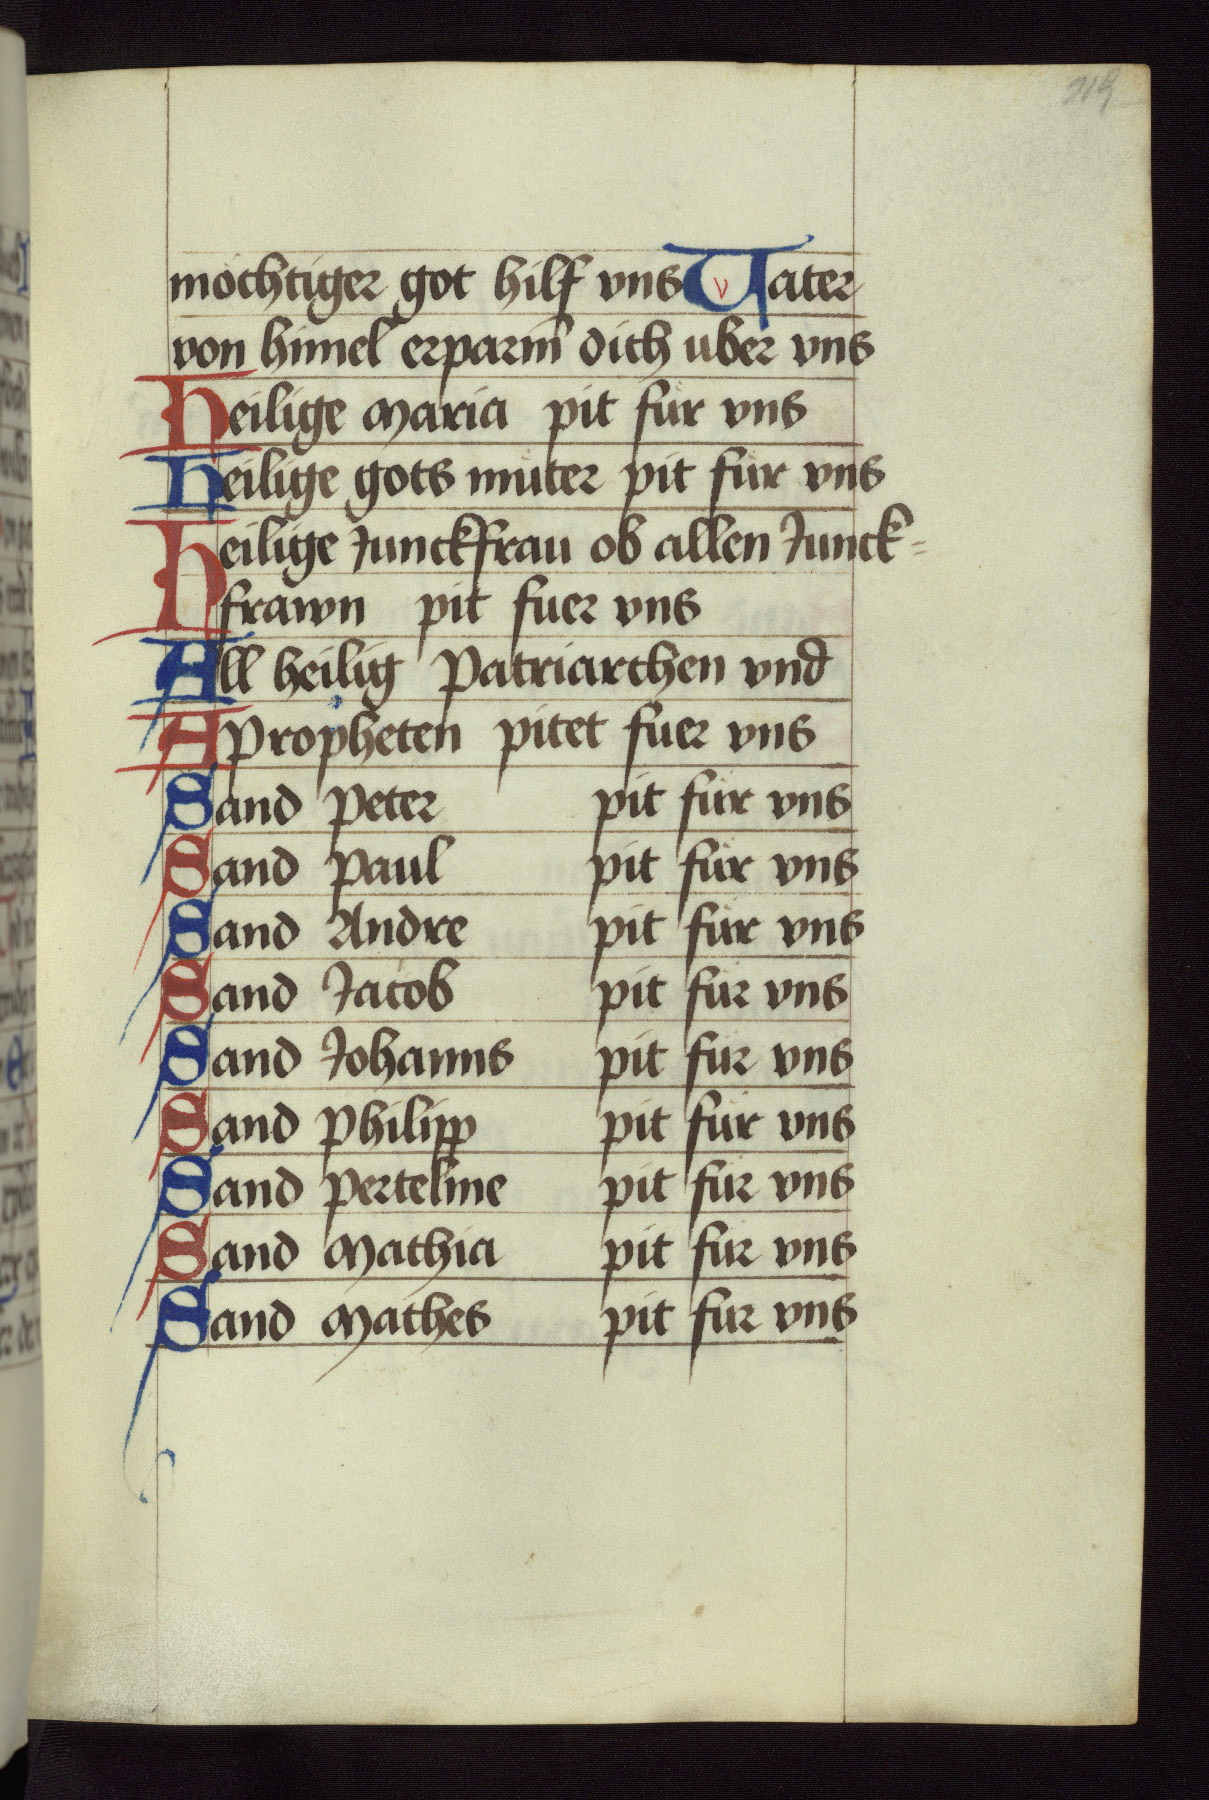 219
mochtiger got hilf vns Vater
von himel erparm dich uber vns
Heilige Maria pit für vns
Heilige gots müter pit für vns
Heilige Junckfrau ob allen Junck=
frawn pit fuer vns
All heilig Patriarchen vnd
APropheten pitet fuer vns
Sand Peter pit für vns
Sand Paul pit für vns
Sand Andre pit für vns
Sand Jacob pit für vns
Sand Johanns pit für vns
Sand Philipp pit für vns
Sand Perteline pit für vns
Sand Mathia pit für vns
Sand Mathes pit fur vns